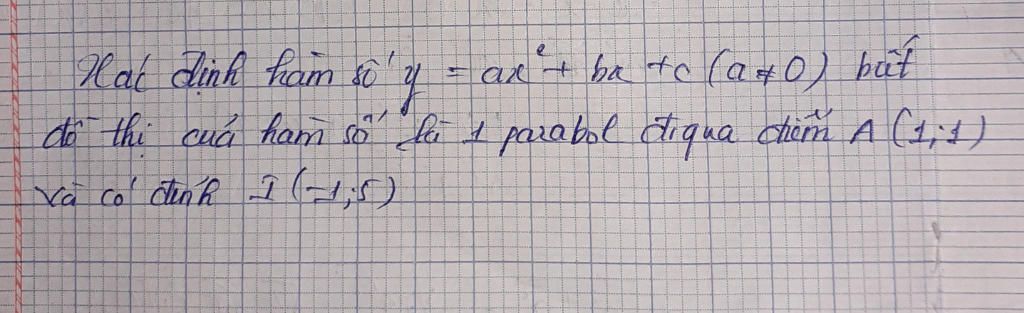 Xác định hàm số y = ax² + bx + c (a ≠ 0) biết
đồ thị của hàm số là 1 parabol đi qua điểm A (1;1)
và có đỉnh I (-1;5)